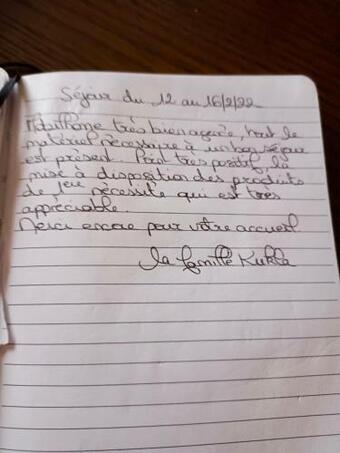 Séjour du 12 au 16/2/22
Mobilhome très bien agencée, tout le
matériel nécessaire à un bon séjour
est présent. Point très positif, la
mise à disposition des produits
de 1er nécessité qui est très
appréciable.
Merci encore pour votre accueil
la famille Kukla